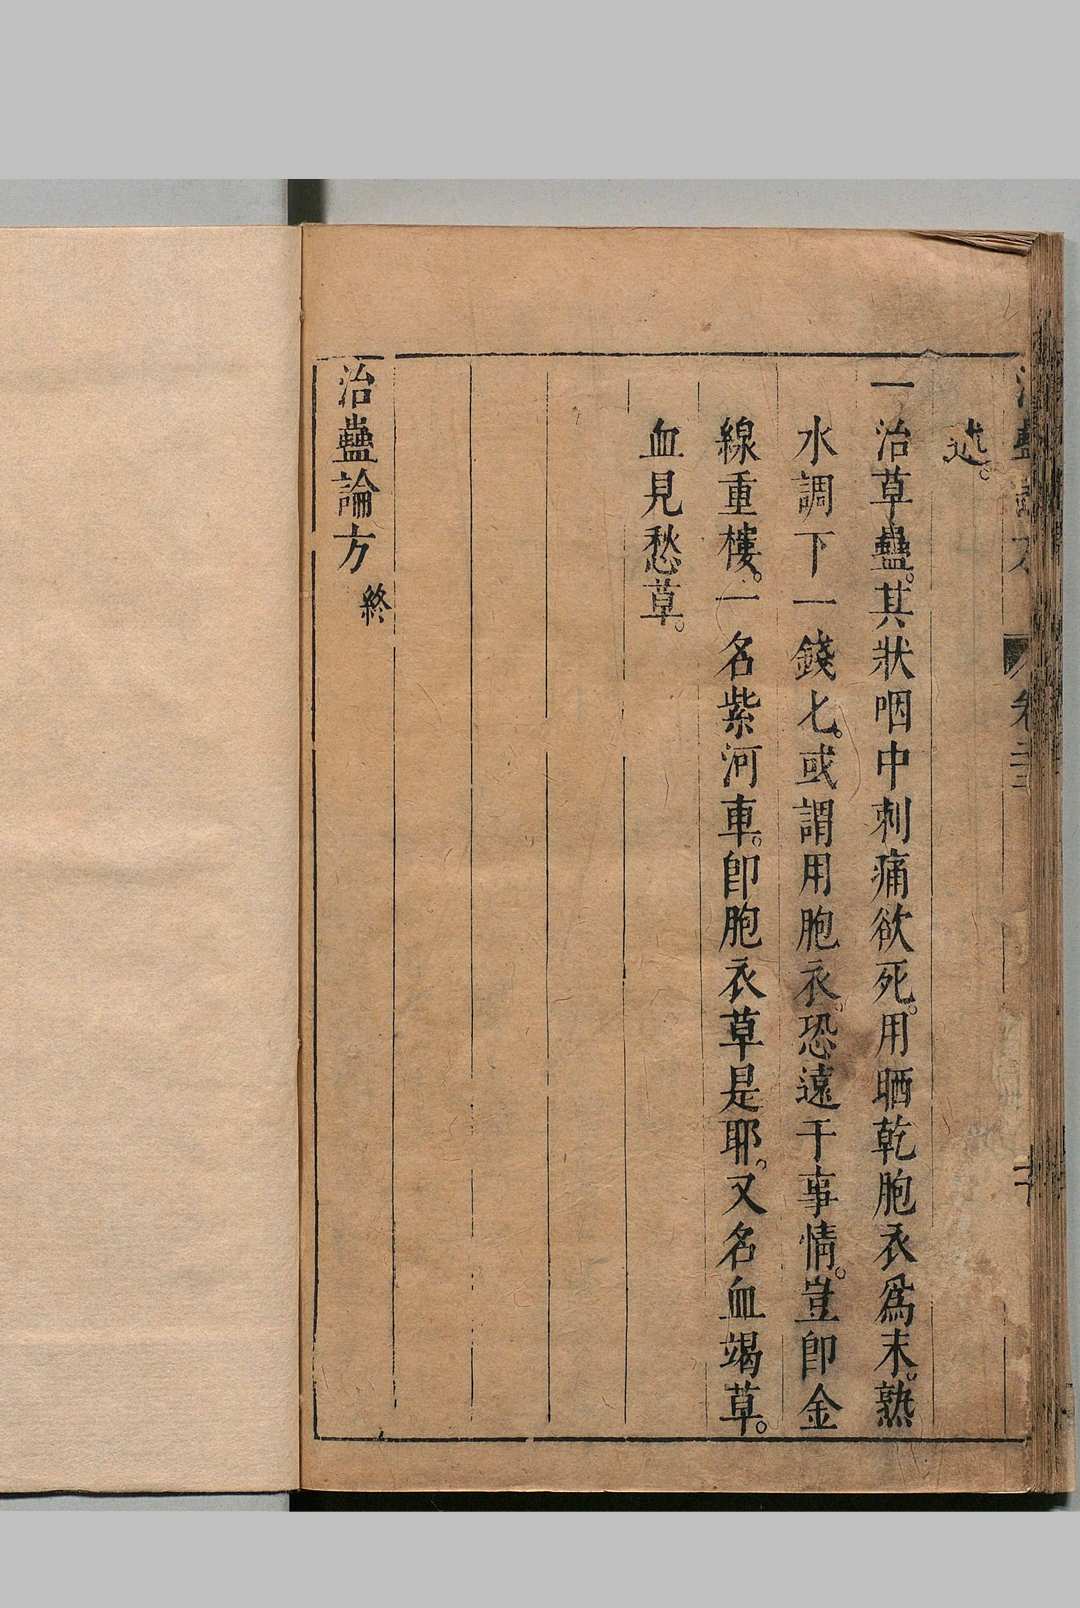 述。
一治草蠱。其狀咽中刺痛欲死。用晒乾胞衣爲末。熟
水調下一錢匕。或謂用胞衣。恐遠干事情。豈卽金
線重樓。一名紫河車。卽胞衣草是耶。又名血竭草。
血見愁草。
治蠱論方 終